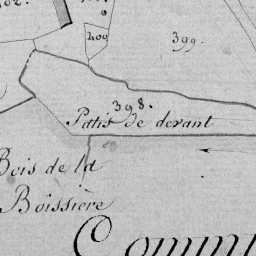 400
399.
398.
Patis de devant
Bois de la
Boissière